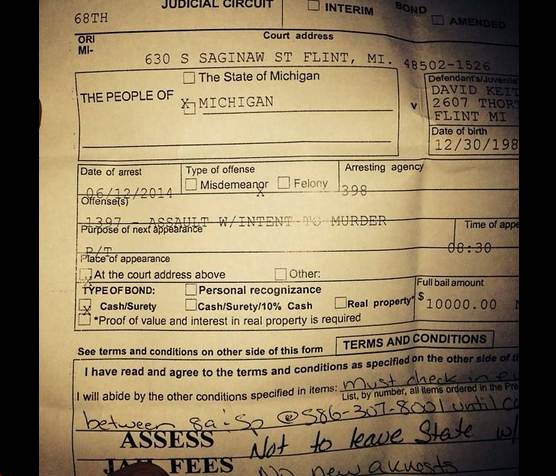 JUDICIAL CIRCUIT
INTERIM BOND
AMENDED
68TH
ORI
MI-
Court address
630 S SAGINAW ST FLINT, MI. 48502-1526
The State of Michigan
THE PEOPLE OF X MICHIGAN
v
Defendant's/Juvenile
DAVID KEIT
2607 THOR
FLINT MI
Date of birth
12/30/198
Date of arrest
06/12/2014
Type of offense
Misdemeanor Felony
X
Arresting agency
398
Offense(s)
1397 - ASSAULT W/INTENT TO MURDER
Purpose of next appearance
P/T
Time of appe
08:30
Place of appearance
At the court address above Other:
TYPE OF BOND: Personal recognizance
X Cash/Surety Cash/Surety/10% Cash Real property*
*Proof of value and interest in real property is required
Full bail amount
$ 10000.00
See terms and conditions on other side of this form
TERMS AND CONDITIONS
I have read and agree to the terms and conditions as specified on the other side of t
I will abide by the other conditions specified in items: Must check in
List, by number, all items ordered in the Pre
between 8a-5p @ 586-307-8001 until
ASSESS
JAIL FEES
Not to leave State w/
No new